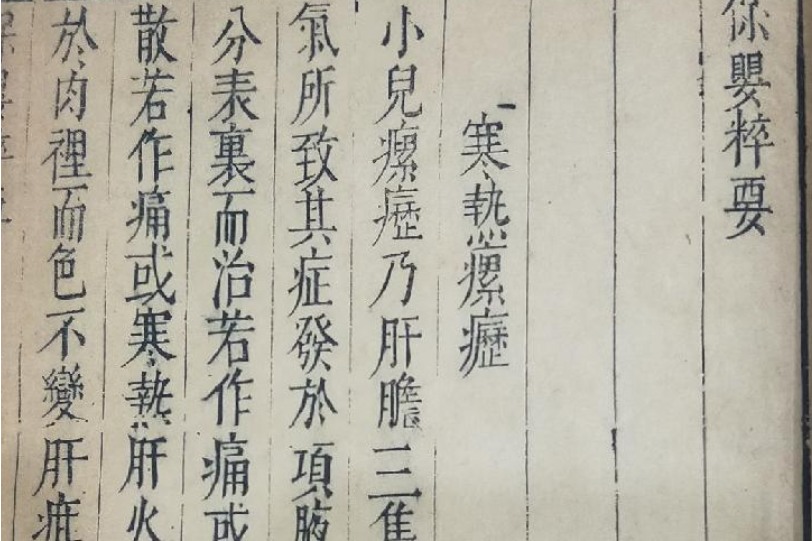 保嬰粹要
一寒熱瘰癧
小兒瘰癧乃肝膽三焦
氣所致其症發於項腋
分表裏而治若作痛或
散若作痛或寒熱肝火
於肉裡而色不變肝疳